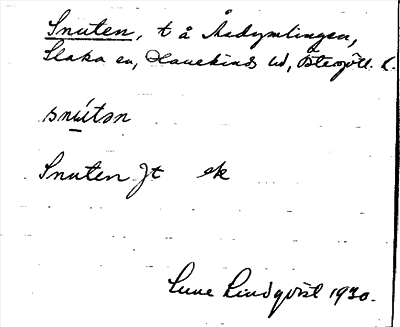 Snuten, t å Åsdymlingen,
Slaka sn, Hanekinds hd, Östergötl. l.
snút̲ən
Snuten Jt ek
Sune Lindqvist 1930.